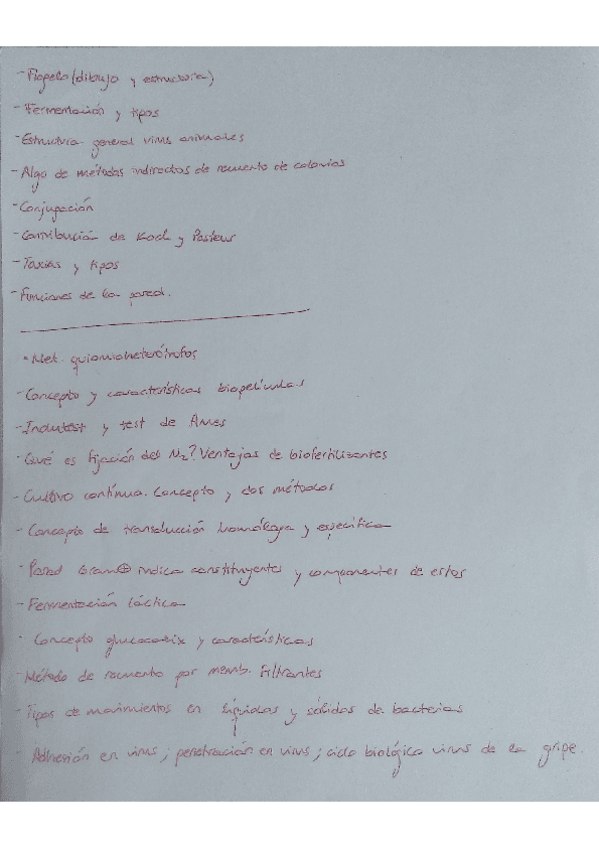 - Flagelo (dibujo y estructura)
- Fermentación y tipos
- Estructura general virus animales
- Algo de métodos indirectos de recuento de colonias
- Conjugación
- Contribución de Koch y Pasteur
- Taxias y tipos
- Funciones de la pared.
• Met. quimioheterótrofos
- Concepto y características biopelículas
- Indutest y test de Ames
- Qué es fijación del N2? Ventajas de biofertilizantes
- Cultivo continuo. Concepto y dos métodos
- Concepto de transducción y específica
- Pared Gram⊕ indica constituyentes y componentes de estos
- Fermentación láctica
- Concepto glucocalix y características
- Método de recuento por memb. Filtrantes
- Tipos de movimientos en líquidos y sólidos de bacterias
- Adhesión en virus; penetración en virus; ciclo biológico virus de la gripe.